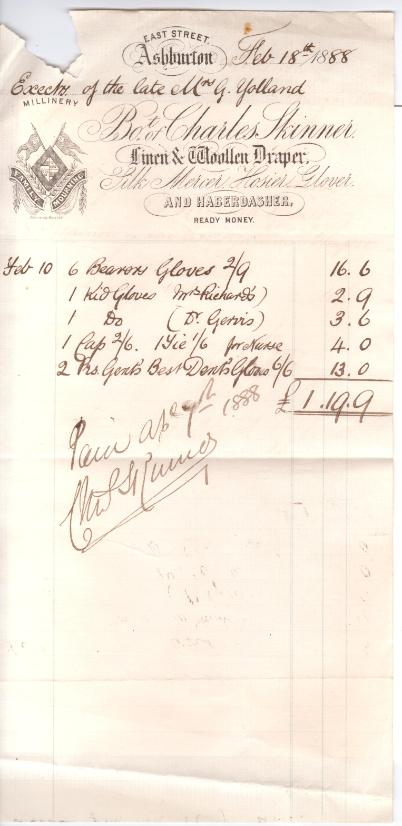 EAST STREET,
Ashburton Feb 18th 1888
Exectrs of the late Mrs G. Yolland
MILLINERY
Bot. of Charles Skinner.
Linen & Woollen Draper.
Silk Mercer, Hosier, Glover.
AND HABERDASHER.
READY MONEY.
FAMILY MOURNING
Feb 10 6 Bearers Gloves 2/9 16. 6
1 Kid Gloves Mrs Richards) 2. 9
1 Do (Dr. Gervis) 3. 6
1 Cap 2/6. 1 Tie 1/6 for Nurse 4. 0
2 Prs. Gents Best Dents Gloves 6/6 13. 0
£ 1.19.9
Paid Ap 1888
Chas Skinner